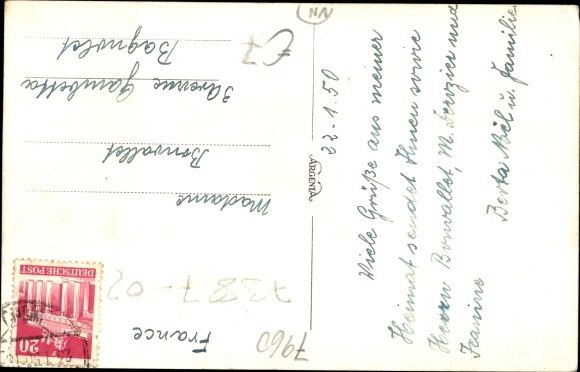 22.1.50
Viele Grüße aus meiner
Heimat sendet Ihnen sowie
Herrn Bonvallet, M. und
Janine
Berta Nöl u. Familie
Madame
Bonvallet
3 Avenue Gambetta
Bagnolet
France
ARGENTA
DEUTSCHE POST
20
7387-02
7960
€7
NN